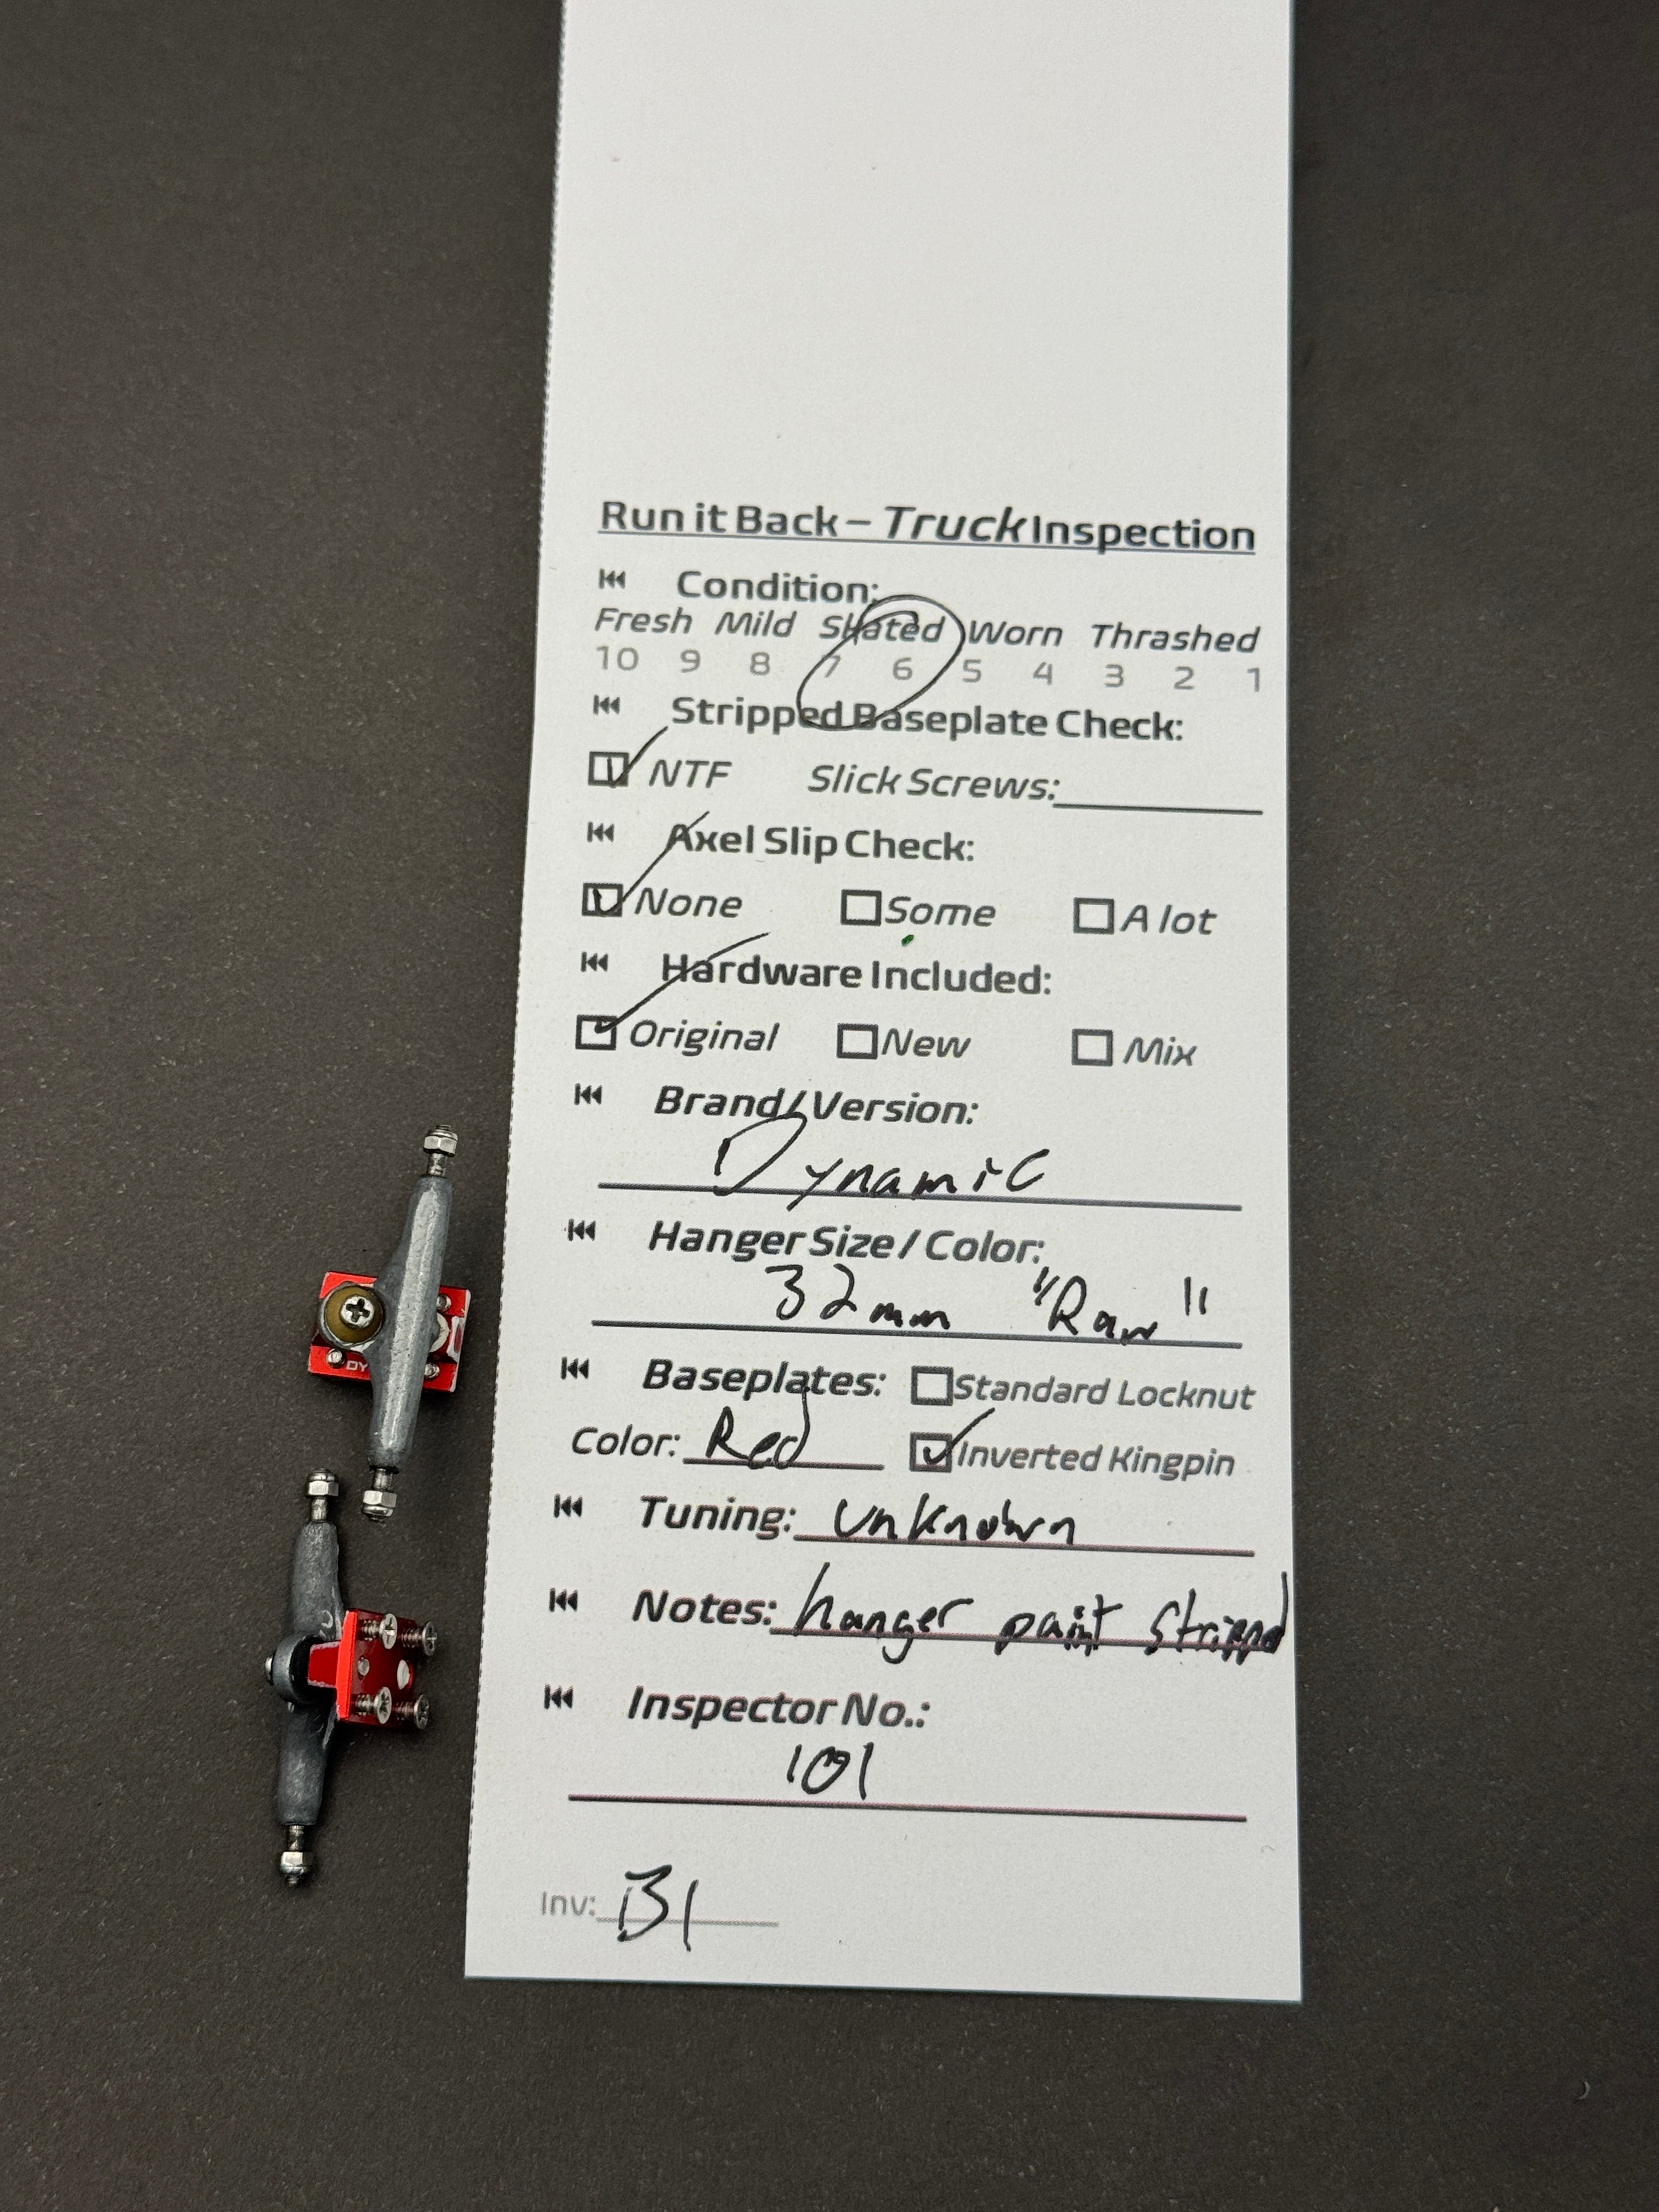 Run it Back – Truck Inspection
Condition:
Fresh Mild Skated Worn Thrashed
10 9 8 7 6 5 4 3 2 1
Stripped Baseplate Check:
NTF Slick Screws:
Axel Slip Check:
None Some A lot
Hardware Included:
Original New Mix
Brand/Version:
Dynamic
Hanger Size / Color:
32mm "Raw"
Baseplates: Standard Locknut
Color: Red Inverted Kingpin
Tuning: unknown
Notes: hanger paint stripped
Inspector No.:
101
Inv: B1
DY